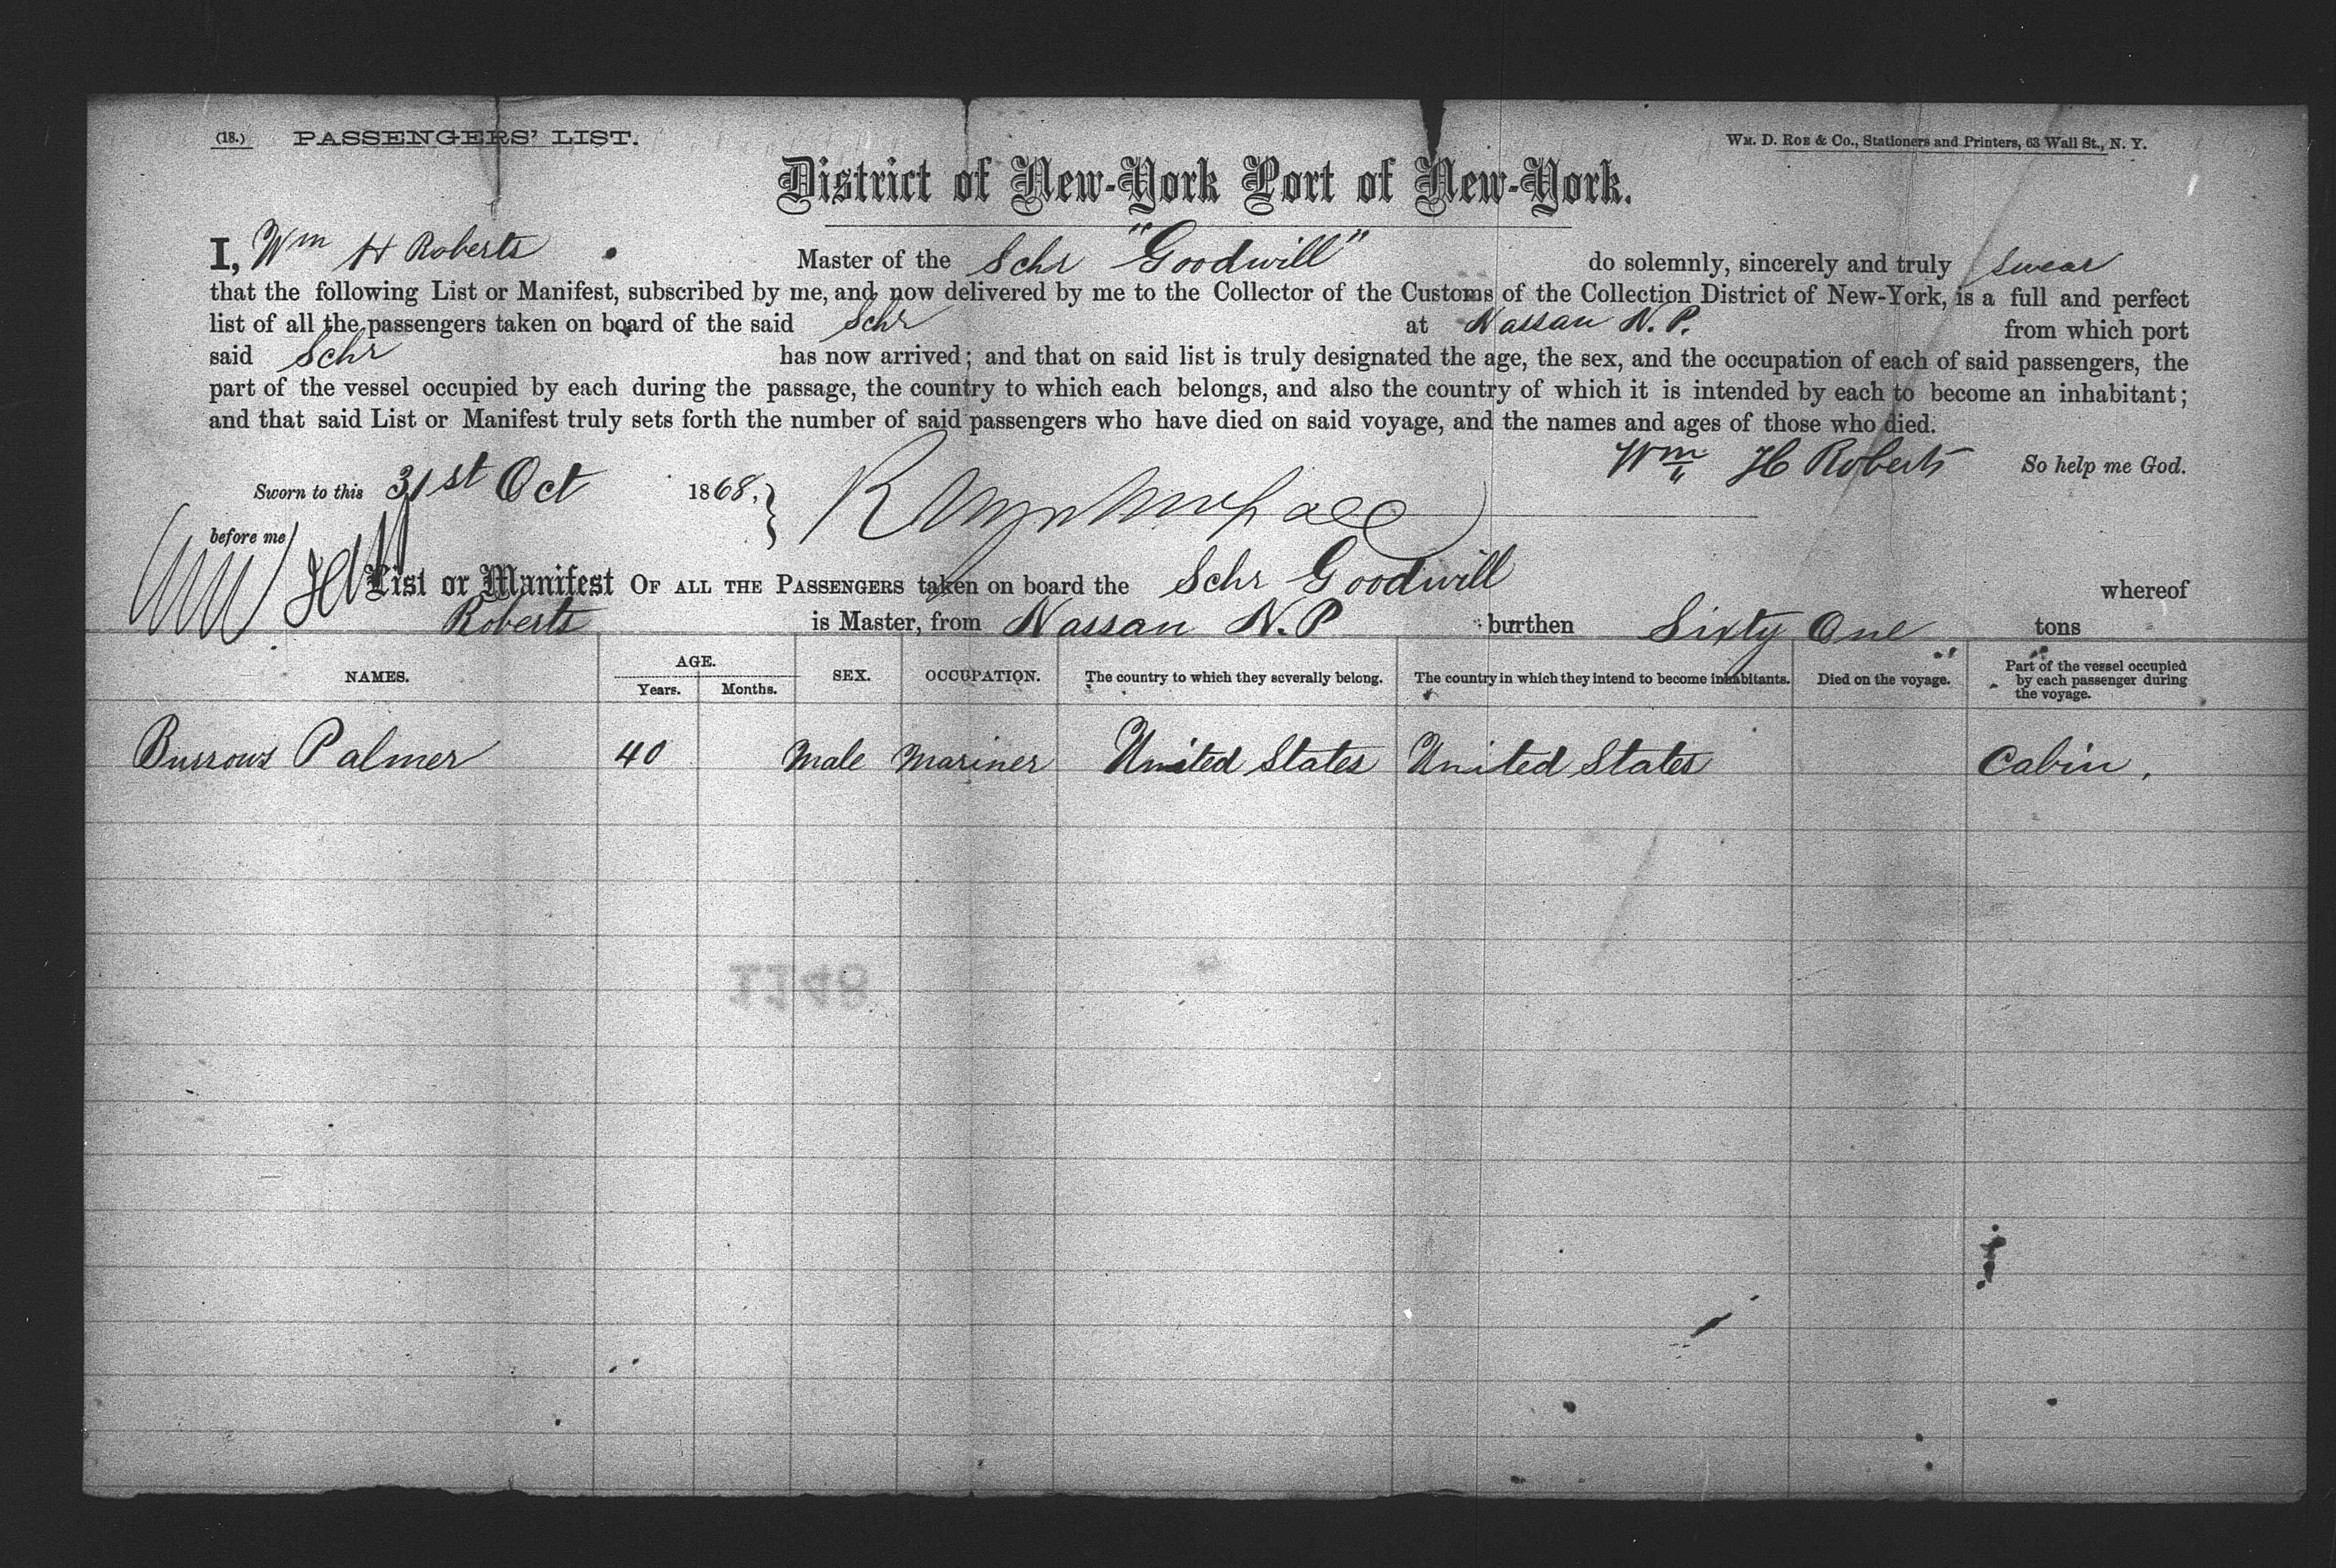 (18.) PASSENGERS' LIST. Wm. D. Roe & Co., Stationers and Printers, 63 Wall St., N. Y.
District of New-York Port of New-York.
I, Wm H Roberts Master of the Schr "Goodwill" do solemnly, sincerely and truly swear
that the following List or Manifest, subscribed by me, and now delivered by me to the Collector of the Customs of the Collection District of New-York, is a full and perfect
list of all the passengers taken on board of the said Schr at Nassau N. P. from which port
said Schr has now arrived; and that on said list is truly designated the age, the sex, and the occupation of each of said passengers, the
part of the vessel occupied by each during the passage, the country to which each belongs, and also the country of which it is intended by each to become an inhabitant;
and that said List or Manifest truly sets forth the number of said passengers who have died on said voyage, and the names and ages of those who died.
Wm H Roberts So help me God.
Sworn to this 31st Oct 1868,
before me
List or Manifest OF ALL THE PASSENGERS taken on board the Schr Goodwill whereof
Wm H Roberts is Master, from Nassau N. P burthen Sixty One tons
NAMES. AGE. Years. Months. SEX. OCCUPATION. The country to which they severally belong. The country in which they intend to become inhabitants. Died on the voyage. Part of the vessel occupied by each passenger during the voyage.
Burrows Palmer 40 Male Mariner United States United States Cabin.
1148